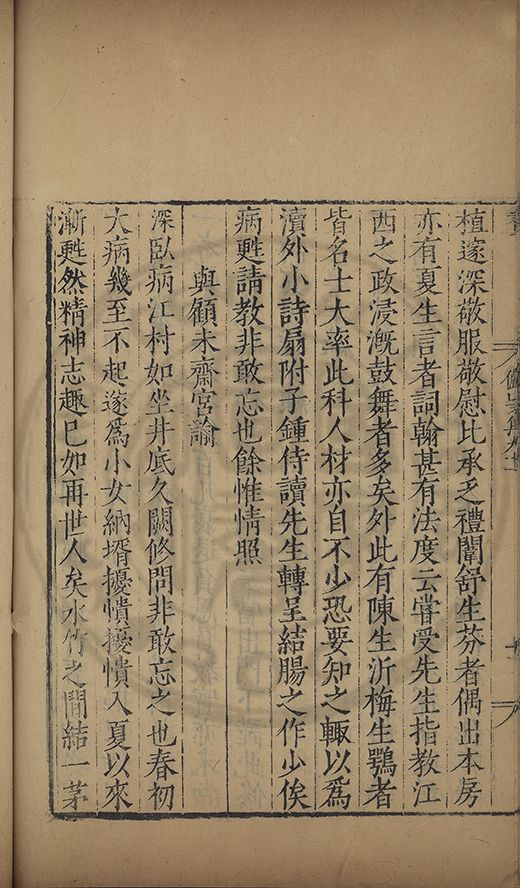 植邃深敬服敬慰比承乏禮闈舒生芬者偶出本房
亦有夏生言者詞翰甚有法度云嘗受先生指教江
西之政浸漑鼓舞者多矣外此有陳生沂梅生鶚者
皆名士大率此科人材亦自不少恐要知之輙以爲
瀆外小詩扇附子鍾侍讀先生轉呈結腸之作少俟
病甦請教非敢忘也餘惟情照
與顧未齋宮諭
深臥病江村如坐井底久闕修問非敢忘之也春初
大病幾至不起遂爲小女納壻擾憒擾憒入夏以來
漸甦然精神志趣已如再世人矣水竹之間結一茅